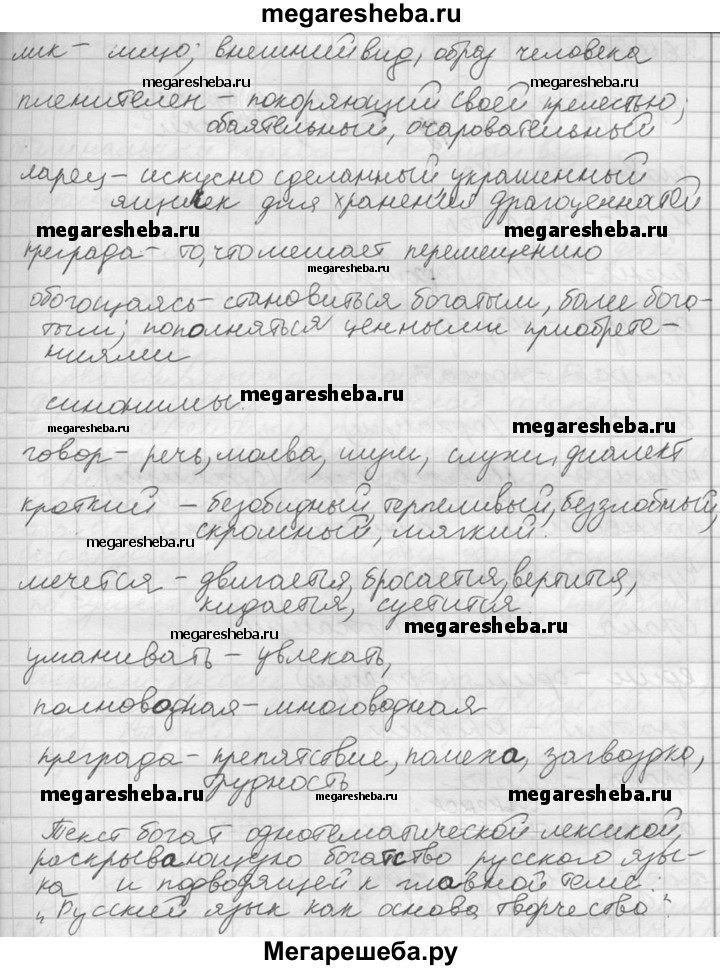 megaresheba.ru
лик – лицо; внешний вид, образ человека
megaresheba.ru megaresheba.ru
пленителен – покоряющий своей прелестью;
обаятельный, очаровательный
ларец – искусно сделанный украшенный
ящичек для хранения драгоценнатей
megaresheba.ru megaresheba.ru
преграда – то, что мешает перемещению
megaresheba.ru
обогощаясь – становиться богатым, более бога-
тым; пополняться ценными приобрете-
ниями
синонимы: megaresheba.ru
megaresheba.ru
говор – речь, молва, шум, слухи, диалект
кроткий – безобидный, терпеливый, беззлобный,
скромный, мягкий.
megaresheba.ru
мечется – двигается, бросается, вертится,
кидается, суетится
megaresheba.ru megaresheba.ru
уманивать – увлекать,
полноводная – многоводная
преграда – препятствие, помеха, загвоздка,
трудность
megaresheba.ru megaresheba.ru megaresheba.ru
Текст богат однотематической лексикой,
раскрывающую богатство русского язы-
ка и подводящей к главной теме:
„Русский язык как основа творчество".
Мегарешеба.ру